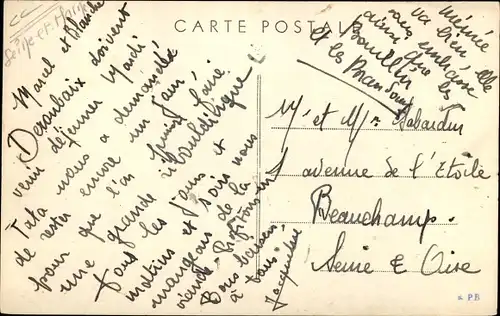 CARTE POSTALE
Marcel et Blanche
Deroubaix doivent
venir déjeuner Mardi
Tata nous a demandé
de rester encore un jour
pour que l'on puisse faire
une grande
Tous les jours et
matins et soirs nous
mangeons de la
viande. Profitons en
Bons baisers
à tous
Jacqueline
mémée
va bien elle
vous embrasse
ainsi que les
Bouillin
et les
Mr et Mme Sabardin
1 avenue de l'Etoile
Beauchamp.
Seine & Oise
PB